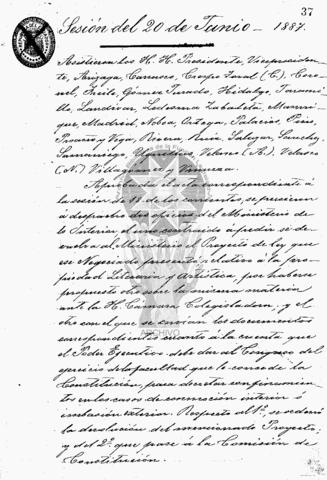 37
Sesión del 20 de Junio - 1887.
Asistieron los H. H. Presidente, Vicepresiden-
te, Arízaga, Carrasco, Crespo Toral (C.), Coro-
nel, Freile, Gómez Jurado, Hidalgo, Jarami-
llo, Landívar, Ledesma, Zabaleta, Manri-
que, Madrid, Noboa, Ortega, Palacios, Páris,
Proaño y Vega, Rivera, Ruiz, Salazar, Sánchez,
Samaniego, Velasco (A.), Velasco
(N.) Villagómez y
Aprobada el acta correspondiente á
la sesión de 18 de los corrientes, se pusieron
á despacho dos oficios del Ministerio de
lo Interior: el uno contraído á pedir se de-
vuelva al Ministerio el Proyecto de ley que
ese Negociado presentó relativo á la pro-
piedad Literaria y Artística, por haberse
propuesto otro sobre la misma materia
ante la H. Cámara Colegisladora; y el
otro con el que se envían los documentos
correspondientes en cuanto á la cuenta que
el Poder Ejecutivo debe dar al Congreso del
ejercicio de la facultad que le concede la
Constitución, para decretar confinamien-
tos en los casos de conmoción interior ó
invasión exterior. Respecto al 1º, se ordenó
la devolución del mencionado Proyecto;
y del 2º, que pase á la Comisión de
Constitución.
ARCHIVO